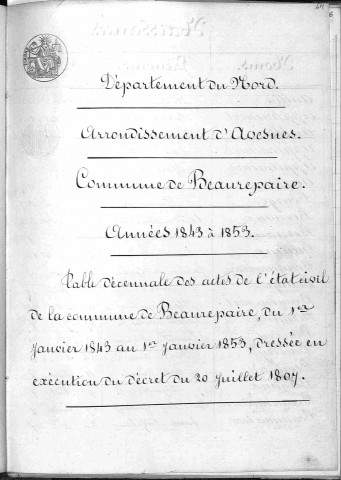 Département du Nord.
Arrondissement d'Avesnes.
Commune de Beaurepaire.
Années 1843 à 1853.
Table décennale des actes de l'état civil
de la commune de Beaurepaire, du 1er
Janvier 1843 au 1er Janvier 1853, dressée en
exécution du décret du 20 Juillet 1807.